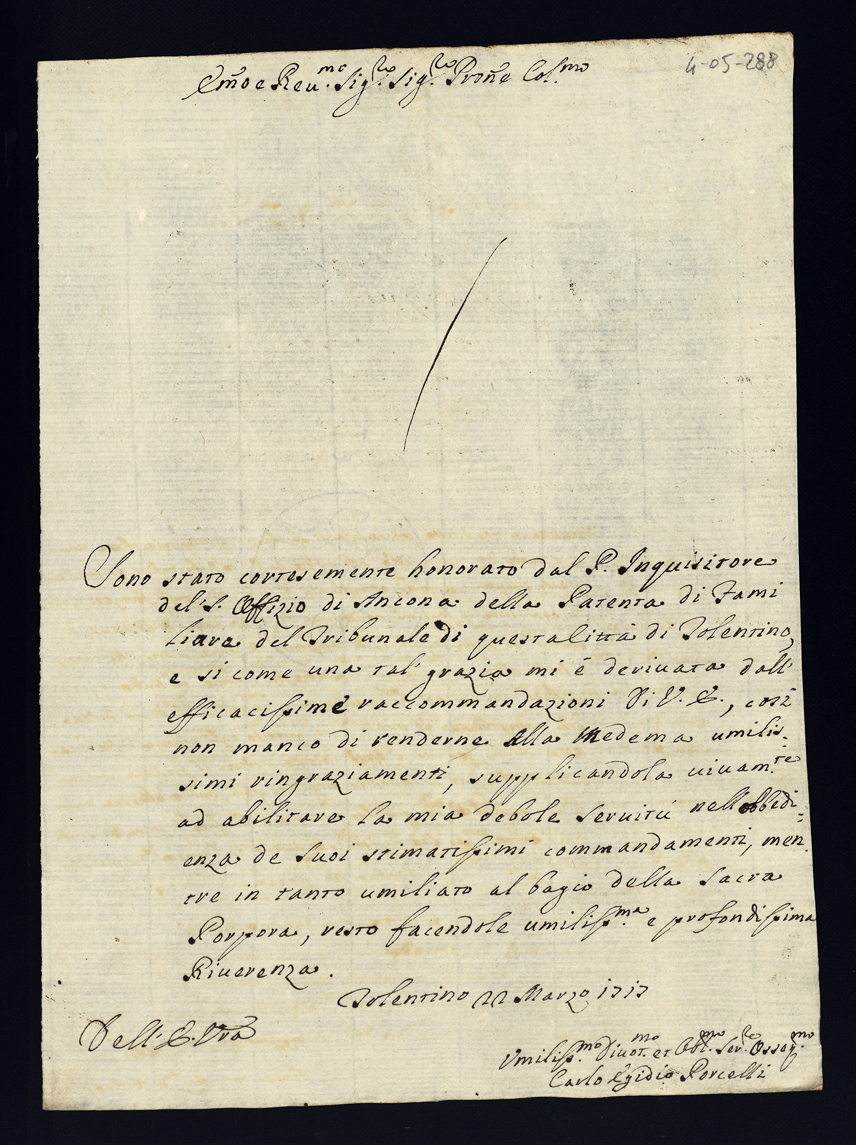 4-05-288
Em̃o e Reu.mo Sig.re Sig.re Proñe Col.mo
Sono stato cortesemente honorato dal P. Inquisitore
del S. Offizio di Ancona della Patenta di Fami
liare del Tribunale di questa Littà di Tolentino,
e si come una tal' grazia mi è deriuata dall'
efficacissime raccommandazioni di V. E., così
non manco di renderne alla Medema umilis-
simi ringraziamenti, supplicandola uiuam.te
ad abilitare la mia debole seruitù nell'obbedi=
enza de suoi stimatissimi commandamenti, men
tre in tanto umiliato al bagio della Sacra
Porpora, resto facendole umiliss.ma e profondissima
Riuerenza.
Tolentino 22 Marzo 1717
Dell' E. Vrã
Vmiliss.mo Diuot.mo et Obl.mo Ser.re Osseq.mo
Carlo Egidio Porcelli